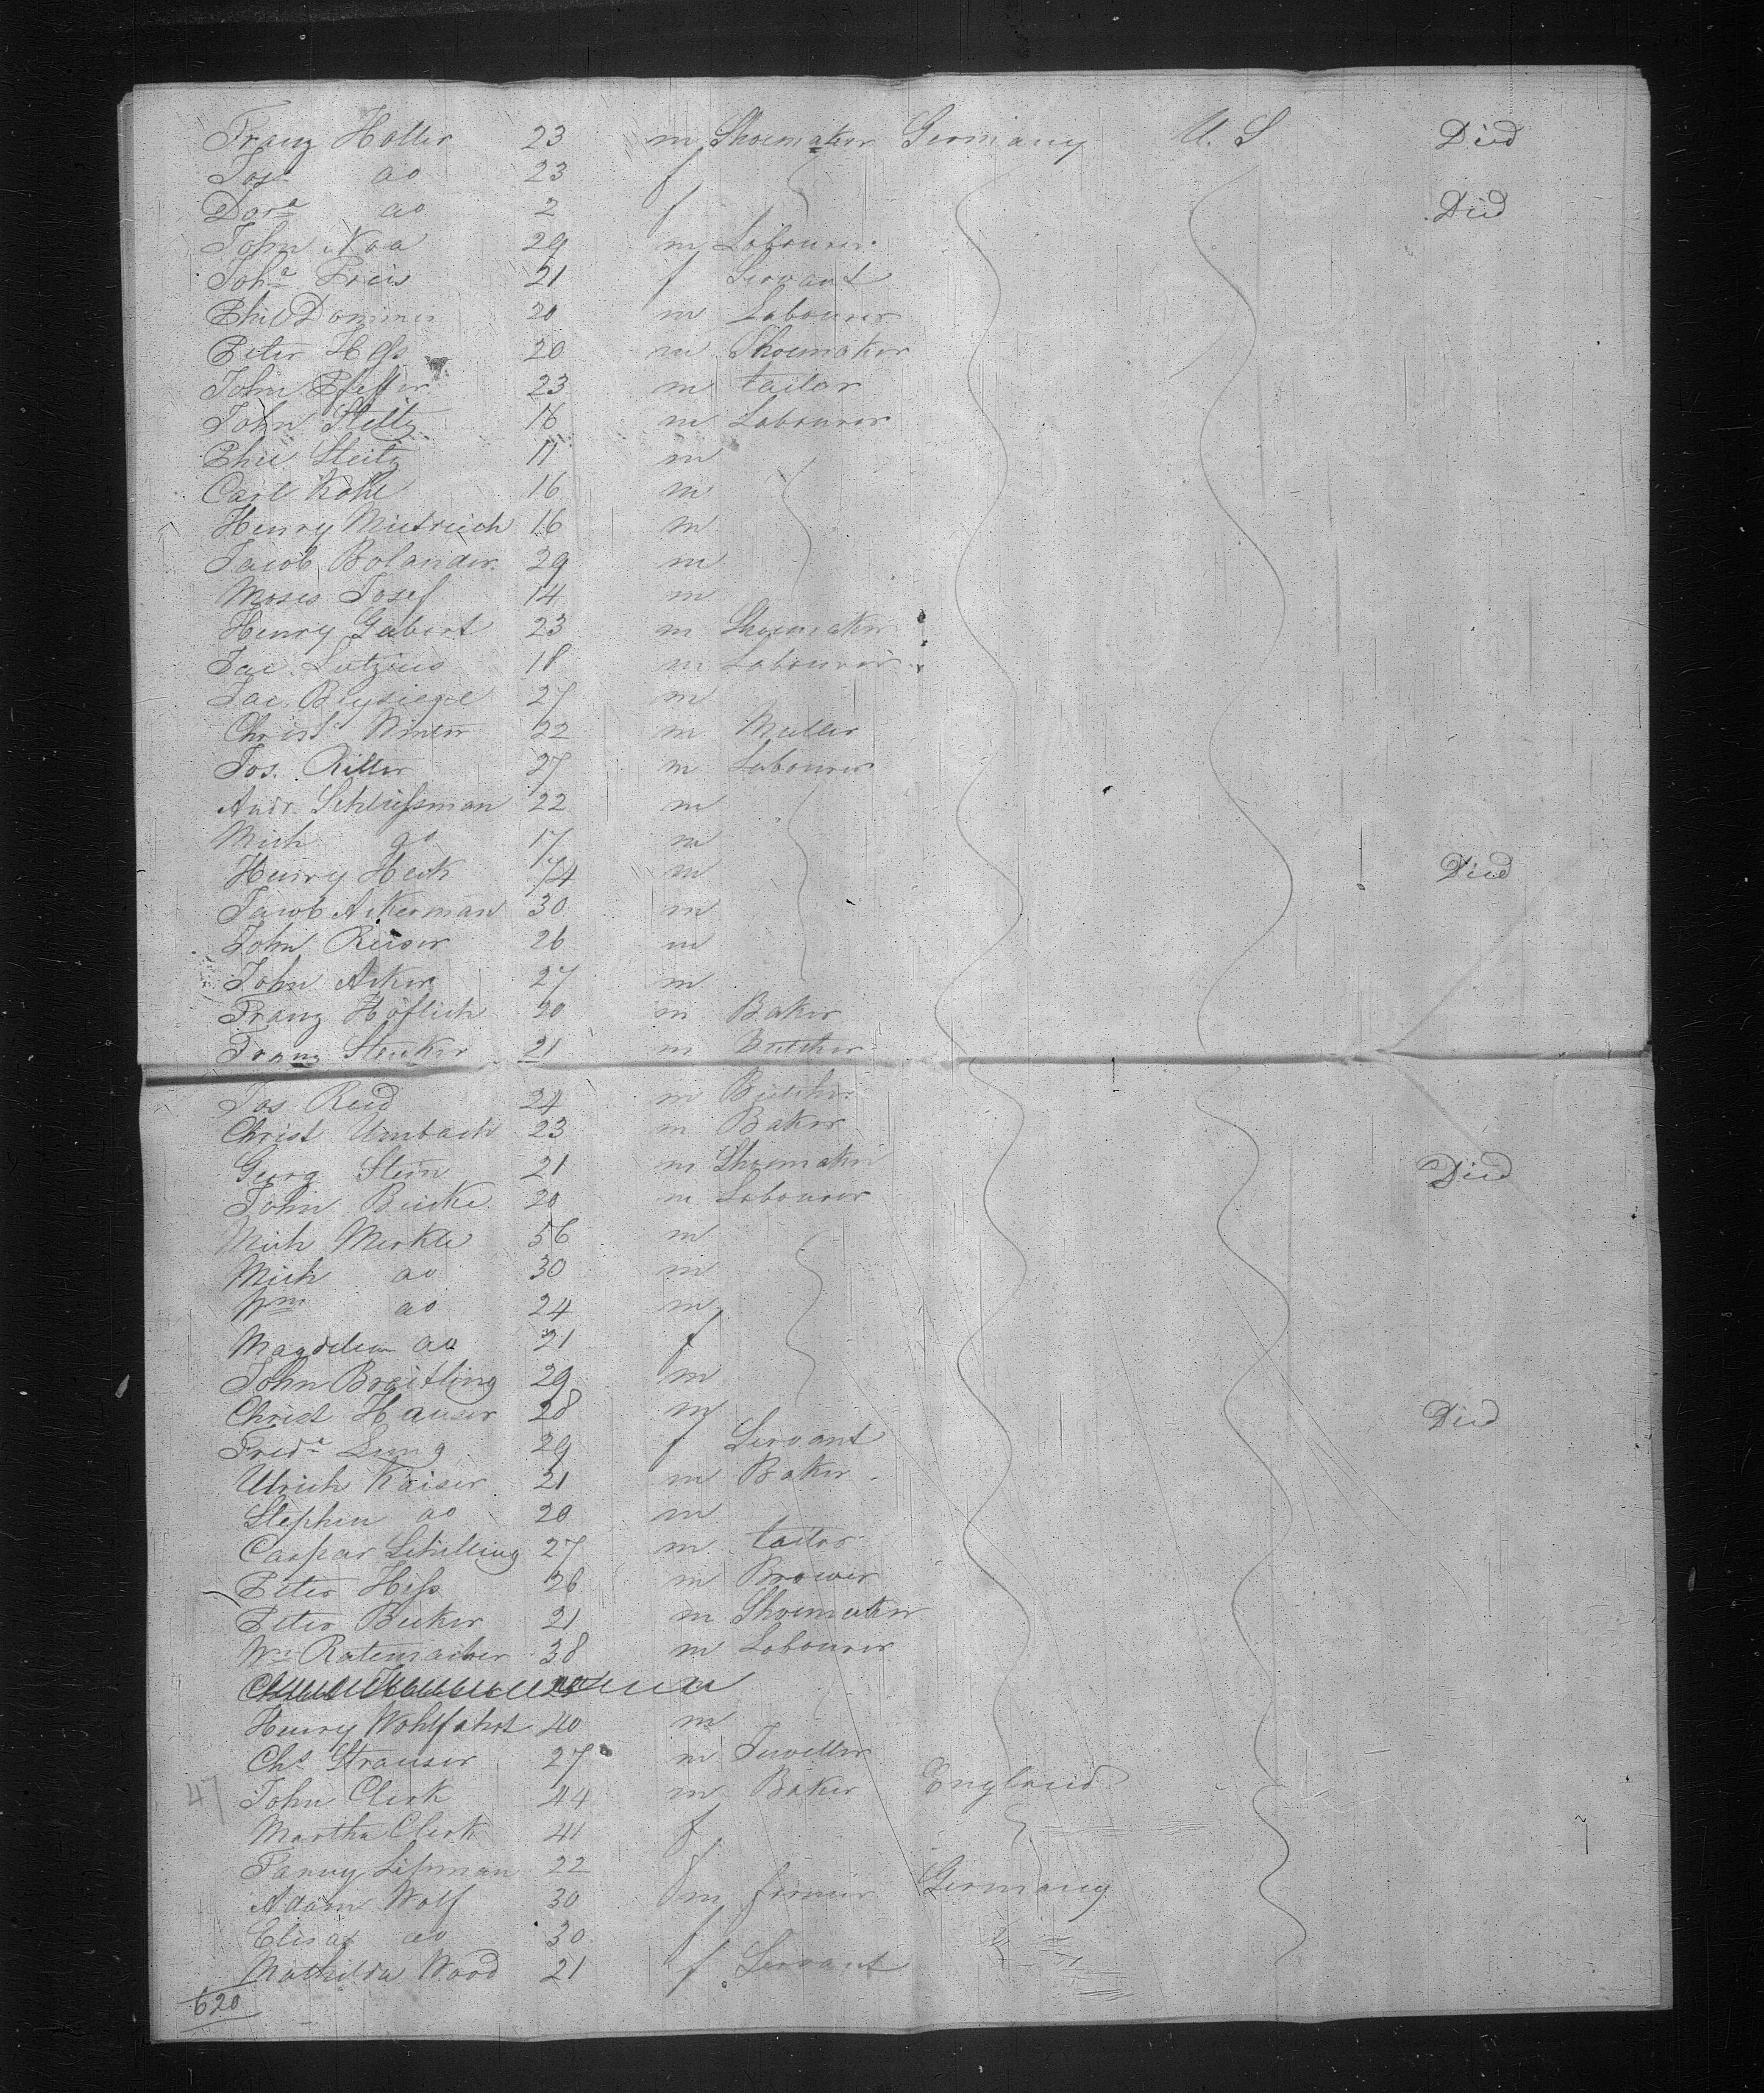 Franz Holler 23 m Shoemaker Germany U. S Died
Josa do 23 f
Dora do 2 f Died
John Noa 29 m Labourer
Joha Freis 21 f Servant
Phil Dommes 20 m Labourer
Peter Hess 20 m Shoemaker
John Pfeffer 23 m tailor
John Steitz 16 m Labourer
Phil Steitz 11 m
Carl Kohl 16 m
Henry Mietreich 16 m
Jacob Bolander 29 m
Moses Josef 14 m
Henry Gabert 23 m Shoemaker
Jac. Lutzius 18 m Labourer
Jac. Beysiegel 27 m
Christ Winter 22 m Miller
Jos. Ritter 27 m Labourer
Andr. Schliessman 22 m
Mich do 17 m
Henry Heck 74 m Died
Jacob Ackerman 30 m
John Reiser 26 m
John Acker 27 m
Franz Höflich 20 m Baker
Franz Stecker 21 m Butcher
Jos Reid 24 m Butcher
Christ Umbach 23 m Baker
Georg Stein 21 m Shoemaker Died
John Beicke 20 m Labourer
Mich Merkle 56 m
Mich do 30 m
Wm do 24 m
Magdelen do 21 f
John Breitling 29 m
Christ Hauser 28 m Died
Freda Lung 29 f Servant
Ulrich Kaiser 21 m Baker
Stephen do 20 m
Caspar Schilling 27 m tailor
Peter Hess 26 m Brower
Peter Becker 21 m Shoemaker
Wm Ratemacher 38 m Labourer
Henry Wohlfahrt 40 m
Chs Strauser 27 m Jweller
47 John Clerk 44 m Baker England
Martha Clerk 41 f
Fanny Lipman 22 f
Adam Wolf 30 m farmer Germany
Elisa do 30 f
Mathilda Wood 21 f Servant
620